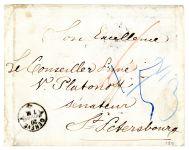 Son Excellence
Le Conseiller Privé
V. Platonoff
sénateur
St. Pétersbourg